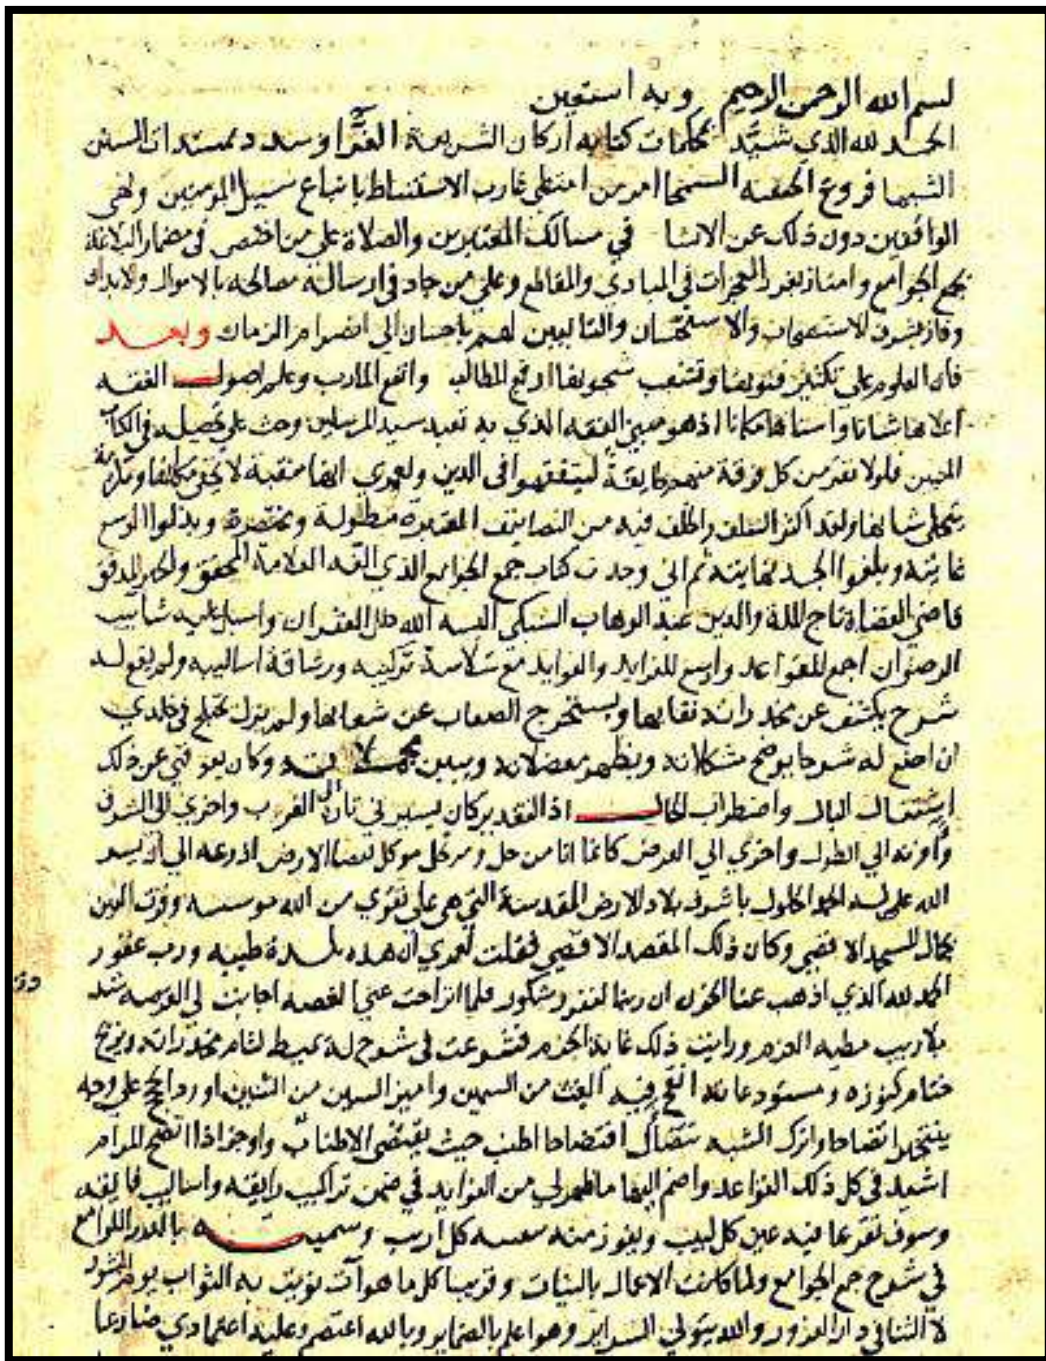 بسم الله الرحمن الرحيم وبه استعين
الحمد لله الذي شيد بمحكمات كتابه اركان الشريعة الغرا وسدد بمسندات السنن
الشهبا فروع الحنفية السمحا امر من امتطى غارب الاستنباط باتباع سبيل المومنين ونهى
الواقفين دون ذلك عن الانتما في مسالك المعتبرين والصلاة على من اختص في مضمار البلاغة
بجمع الجوامع وامتاز بغرر المعجزات في المبادي والمقاطع وعلى من جاد في ارسالة مصالحه بالاموال والابدان
وفاز بشرف الاستصحاب والاستحسان والتابعين لهم باحسان الى انصرام الزمان وبعد
فان العلوم على تكثير فنونها وتشعب شجونها ارفع المطالب وانفع المارب وعلم اصول الفقه
اعلاها شانا واسناها مكانا اذ هو مبنى الفقه الذي به تعبد سيد المرسلين وحث على تحصيله في الكتاب
المبين فلولا نفر من كل فرقة منهم طايفة ليتفقهوا في الدين ولعمري انها منقبة لا يخفى مكانها
شانها ولقد اكثر السلف والخلف فيه من التصانيف المعتبرة مطولة ومختصرة وبذلوا الوسع
غايته وبلغوا الجد نهايته ثم اني وجدت كتاب جمع الجوامع الذي الفه العلامة المحقق والحبر المدقق
قاضي القضاة تاج الملة والدين عبد الوهاب السبكي البسه الله حلل الغفران واسبل عليه شابيب
الرضوان اجمع للقواعد واوسع للفرايد والفوايد مع سلاسة تركيبه ورشاقة اساليبه ولم يقع له
شرح يكشف عن مخدراته نقابها ويستخرج الصعاب عن شعابها ولم يزل يختلج في خلدي
ان اضع له شرحا يوضح مشكلاته ويظهر معضلاته ويبين مجملاته وكان يعوقني عن ذلك
اشتغال البال واضطراب الحال اذ التقدير كان يسيرني تارة الى الغرب واخرى الى الشرق
وآونة الى الطول واخرى الى العرض كانما انا من حل ومرتحل موكل بفضا الارض اذرعه الى ان يسر
الله على له الحمد الحلول باشرف بلاد الارض المقدسة التي هي على تقوى من الله موسسه وقرت العين
بجمال المسجد الاقصى وكان ذلك المقصد الاقصى فقلت لعمري ان هذه بلدة طيبة ورب غفور
الحمد لله الذي اذهب عنا الحزن ان ربنا لغفور شكور فلما انزاحت عني الغصه اجابت لي الفرصه شد
بلا ريب مطيه العزم ورايت ذلك غاية الحزم فشرعت في شرح له يميط لثام مخدراته ويزيح
ختام كنوزه ومستودعاته انقح فيه الغث من السمين واميز السين من الشين اورد الحج على وجه
يتضح اتضاحا واترك الشبه تتضاءل افتضاحا اطنب حيث يقتضي الاطناب واوجز اذا اتضح المرام
اشيد في كل ذلك القواعد واضم اليها ما ظهر لي من الفوايد في ضمن تراكيب رايقه واساليب فايقه
وسوف تقر بما فيه عين كل لبيب ويفوز منه بنفسه كل اريب وسميته بالدرر اللوامع
في شرح جمع الجوامع ولما كانت الاعمال بالنيات وقريبا كل ما هو آت نويت به الثواب يوم النشور
لا الثنا في دار الغرور والله يتولى السراير وهو اعلم بالضماير وبالله اعتصم وعليه اعتمادي ضارعا